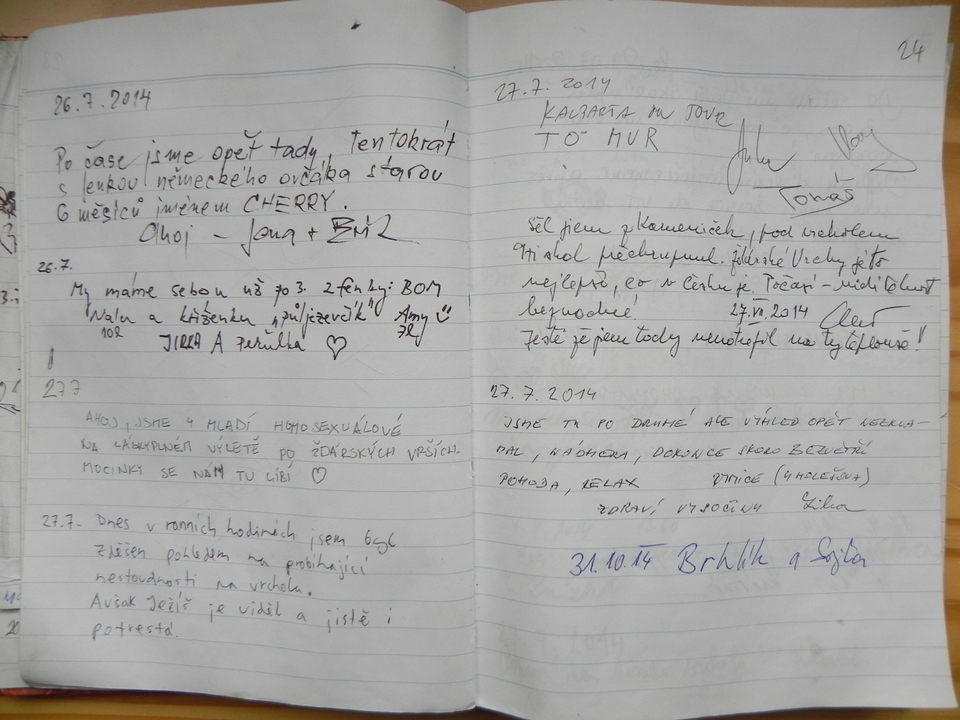 26.7.2014
Po čase jsme opět tady, tentokrát
s fenkou německého ovčáka starou
6 měsíců jménem CHERRY.
Ahoj - Jana +
26.7.
My máme sebou už po 3. 2 fenky: BOM
Nalu a kříženku Amy
JIRKA A Peťulka ♡
27.7
AHOJ, JSME 4 MLADÍ HOMOSEXUÁLOVÉ
NA LÁSKYPLNÉM VÝLETĚ PO ŽDÁRSKÝCH VRŠÍCH.
MOCINKY SE NÁM TU LÍBÍ ♡
27.7. Dnes v ranních hodinách jsem byl
zděšen pohledem na probíhající
nestoudnosti na vrcholu.
Avšak Ježíš je viděl a jistě i
potrestá.
24
27.7. 2014
TO HUR
Tomáš
Šel jsem z Kameniček, pod vrcholem
přechrupnul. Žďárské Vrchy je to
nejlepší, co v Česku je. Počasí - viditelnost
27.VII.2014
Ještě že jsem tady nenatrefil na ty teplouše!
27.7.2014
JSME TU PO DRUHÉ ALE VÝHLED OPĚT NEZKLA-
MAL, NÁDHERA, DOKONCE SKORO BEZVĚTŘÍ
POHODA, RELAX
ZDRAVÍ VYSOČINU
31.10.14 Brhlík a Sojka